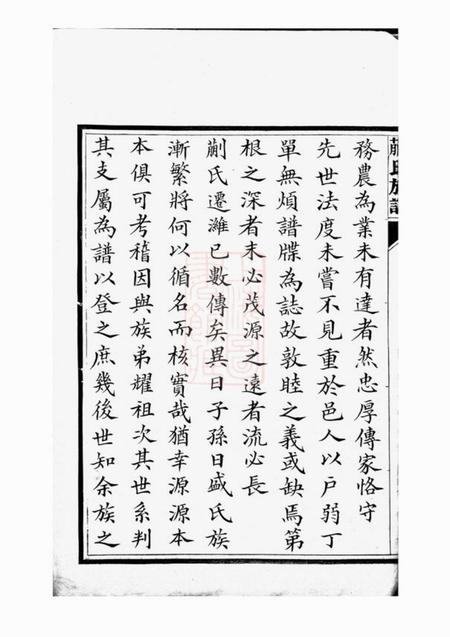 蒯氏族譜
務農為業未有達者然忠厚傳家恪守
先世法度未嘗不見重於邑人以戶弱丁
單無煩譜牒為誌故敦睦之義或缺焉第
根之深者末必茂源之遠者流必長
蒯氏遷濰已數傳矣異日子孫日盛氏族
漸繁將何以循名而核實哉猶幸源源本
本俱可考稽因與族弟耀祖次其世系判
其支屬為譜以登之庶幾後世知余族之